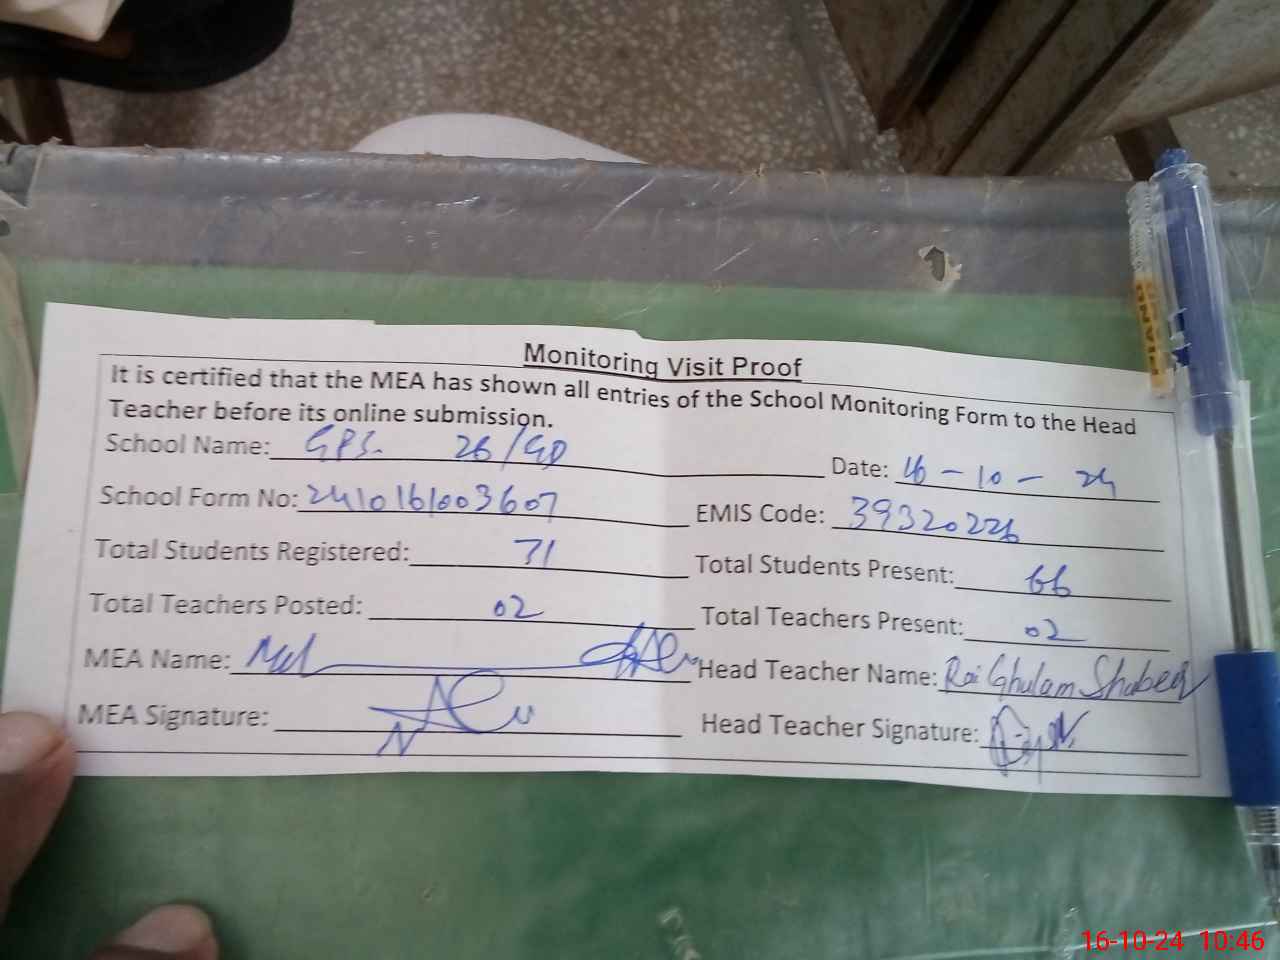 Monitoring Visit Proof
It is certified that the MEA has shown all entries of the School Monitoring Form to the Head
Teacher before its online submission.
School Name: GPS. 26/GD Date: 16-10-24
School Form No: 2410161003607 EMIS Code: 39320226
Total Students Registered: 71 Total Students Present: 66
Total Teachers Posted: 02 Total Teachers Present: 02
MEA Name: Head Teacher Name: Rai Ghulam Shabeer
MEA Signature: Head Teacher Signature:
16-10-24 10:46